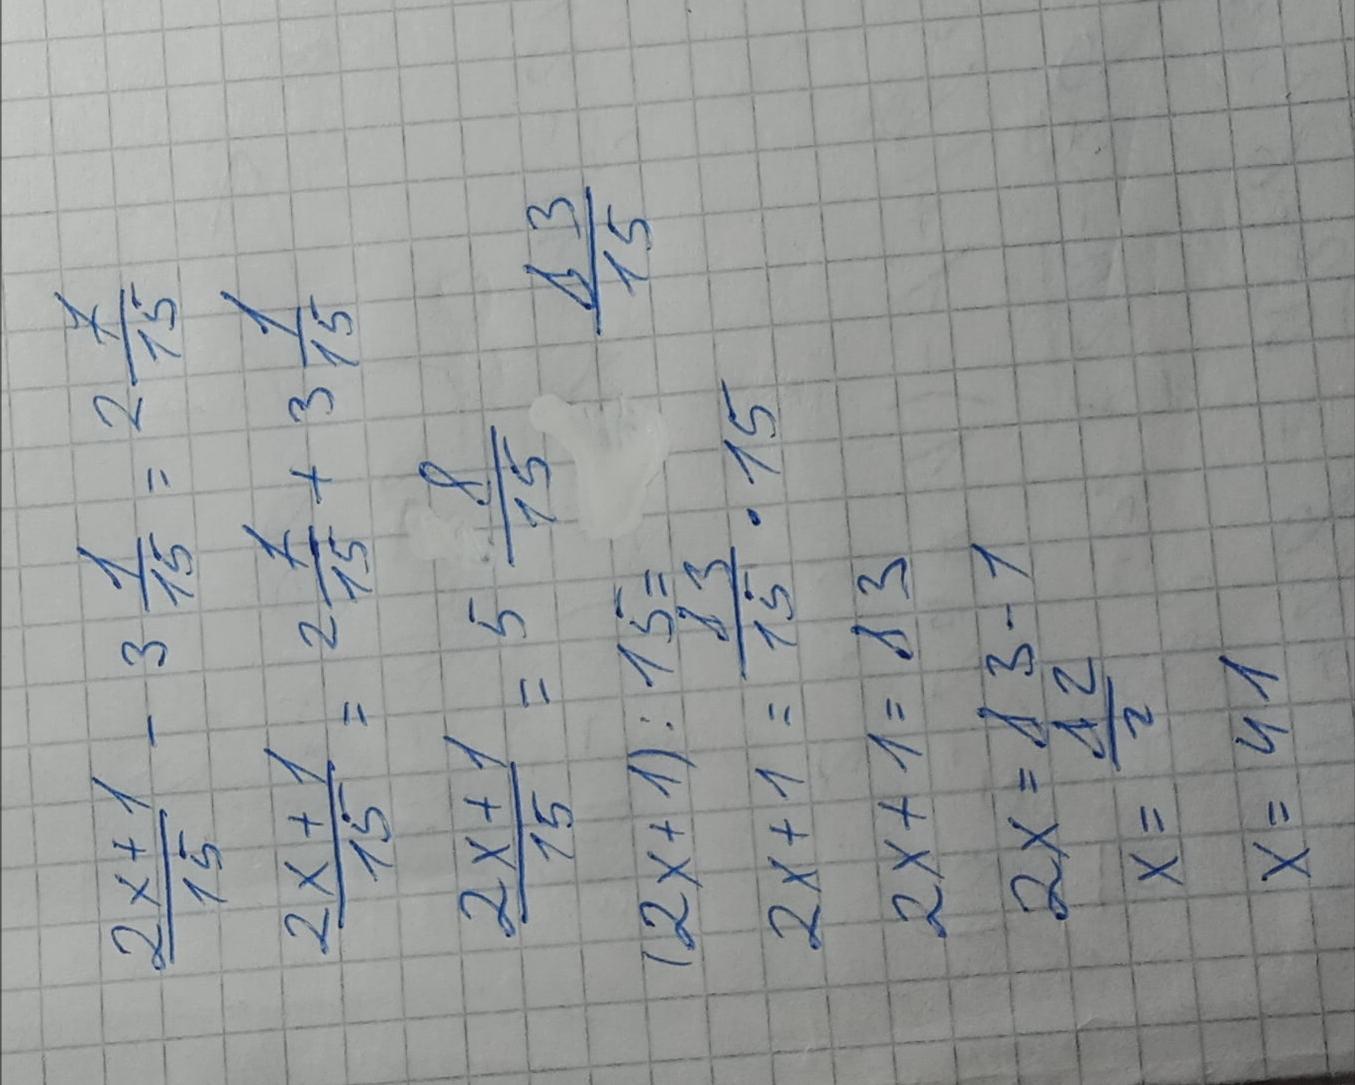 (2x+1)/15 - 3 1/15 = 2 7/15
(2x+1)/15 = 2 7/15 + 3 1/15
(2x+1)/15 = 5 8/15
(2x+1):15= 83/15
2x+1 = 83/15 · 15
2x+1= 83
2x= 83-1
x= 82/2
x= 41